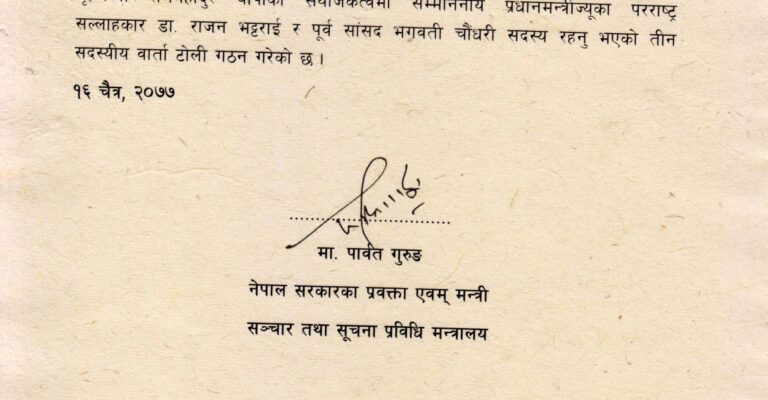 संयोजकत्वमा सम्माननीय प्रधानमन्त्रीज्यूका परराष्ट्र
सल्लाहकार डा. राजन भट्टराई र पूर्व सांसद भगवती चौंधरी सदस्य रहनु भएको तीन
सदस्यीय वार्ता टोली गठन गरेको छ।
१६ चैत्र, २०७७
मा. पार्वत गुरुङ
नेपाल सरकारका प्रवक्ता एवम् मन्त्री
सञ्चार तथा सूचना प्रविधि मन्त्रालय